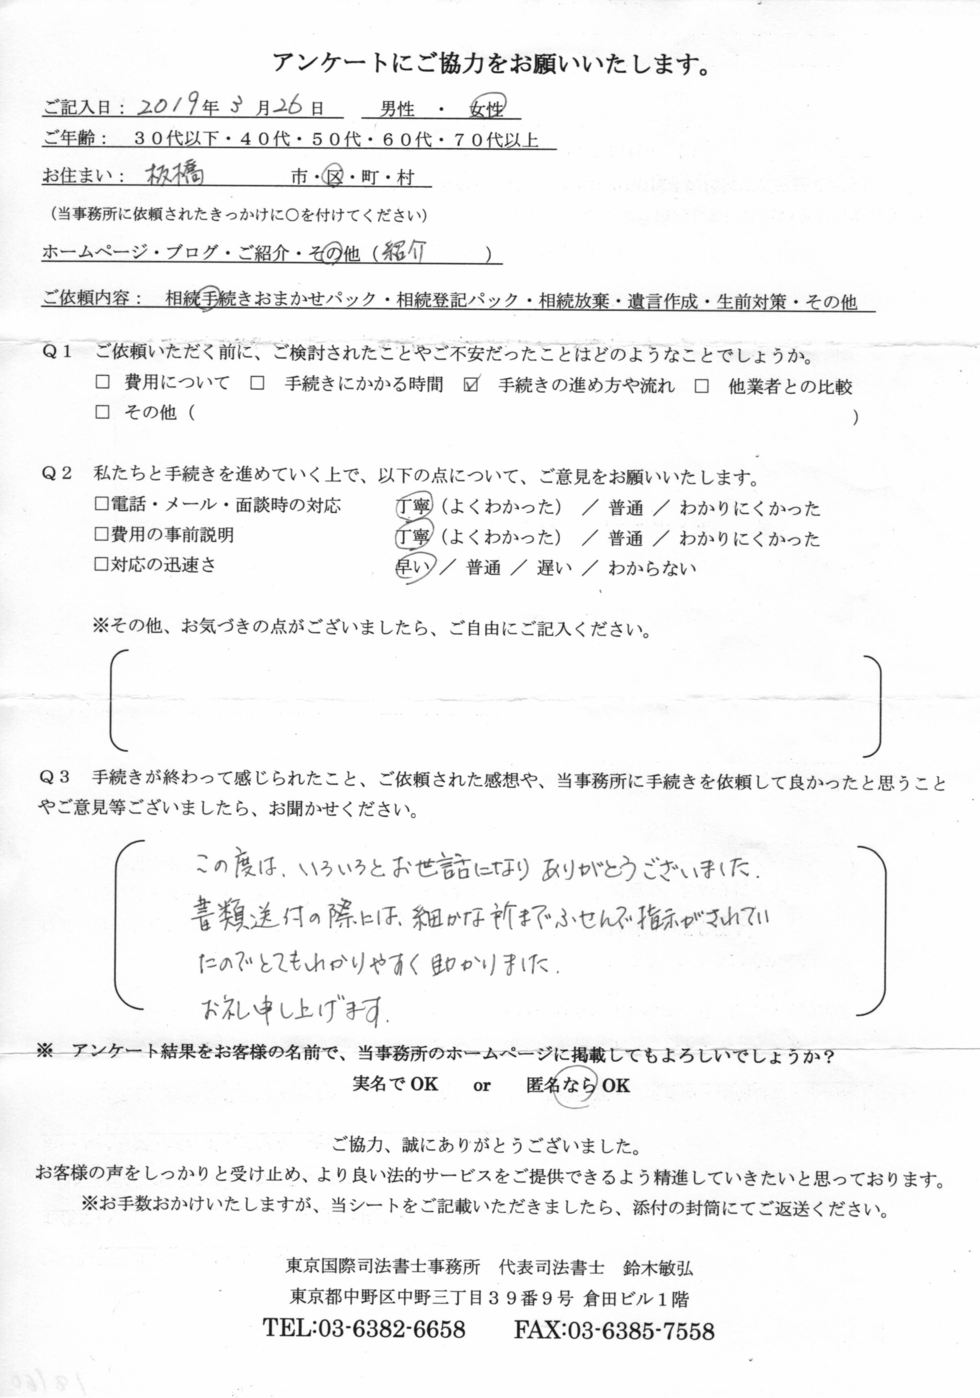 アンケートにご協力をお願いいたします。
ご記入日： 2019年 3 月 26 日　男性 ・ 女性
ご年齢： ３０代以下・４０代・５０代・６０代・７０代以上
お住まい： 板橋　市・区・町・村
（当事務所に依頼されたきっかけに○を付けてください）
ホームページ・ブログ・ご紹介・その他（ 紹介 ）
ご依頼内容： 相続手続きおまかせパック・相続登記パック・相続放棄・遺言作成・生前対策・その他
Ｑ１　ご依頼いただく前に、ご検討されたことやご不安だったことはどのようなことでしょうか。
□ 費用について □ 手続きにかかる時間 ☑ 手続きの進め方や流れ □ 他業者との比較
□ その他（　）
Ｑ２　私たちと手続きを進めていく上で、以下の点について、ご意見をお願いいたします。
□電話・メール・面談時の対応　丁寧（よくわかった） ／ 普通 ／ わかりにくかった
□費用の事前説明　丁寧（よくわかった） ／ 普通 ／ わかりにくかった
□対応の迅速さ　早い ／ 普通 ／ 遅い ／ わからない
※その他、お気づきの点がございましたら、ご自由にご記入ください。
Ｑ３　手続きが終わって感じられたこと、ご依頼された感想や、当事務所に手続きを依頼して良かったと思うこと
やご意見等ございましたら、お聞かせください。
この度は、いろいろとお世話になりありがとうございました.
書類送付の際には、細かな所までふせんで指示がされてい
たのでとてもわかりやすく助かりました.
お礼申し上げます.
※　アンケート結果をお客様の名前で、当事務所のホームページに掲載してもよろしいでしょうか？
実名で OK　or　匿名なら OK
ご協力、誠にありがとうございました。
お客様の声をしっかりと受け止め、より良い法的サービスをご提供できるよう精進していきたいと思っております。
※お手数おかけいたしますが、当シートをご記載いただきましたら、添付の封筒にてご返送ください。
東京国際司法書士事務所　代表司法書士　鈴木敏弘
東京都中野区中野三丁目３９番９号 倉田ビル１階
TEL:03-6382-6658　FAX:03-6385-7558